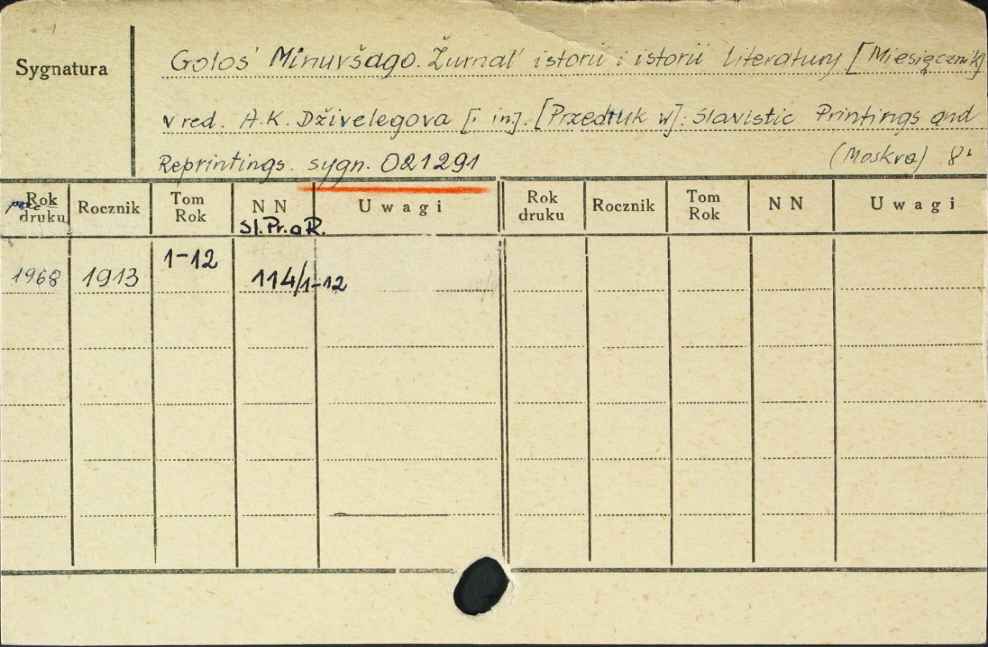 Sygnatura
Golos' Minuvšago. Žurnal' istorii i istorii literatury [Miesięcznik]
v red. A.K. Dživelegova [i in]. [Przedruk w]: Slavistic Printings and
Reprintings. sygn. 021291 (Moskva) 8°
Rok druku Rocznik Tom Rok NN Uwagi Rok druku Rocznik Tom Rok NN Uwagi
Sl. Pr. a R.
1968 1913 1-12 114/1-12